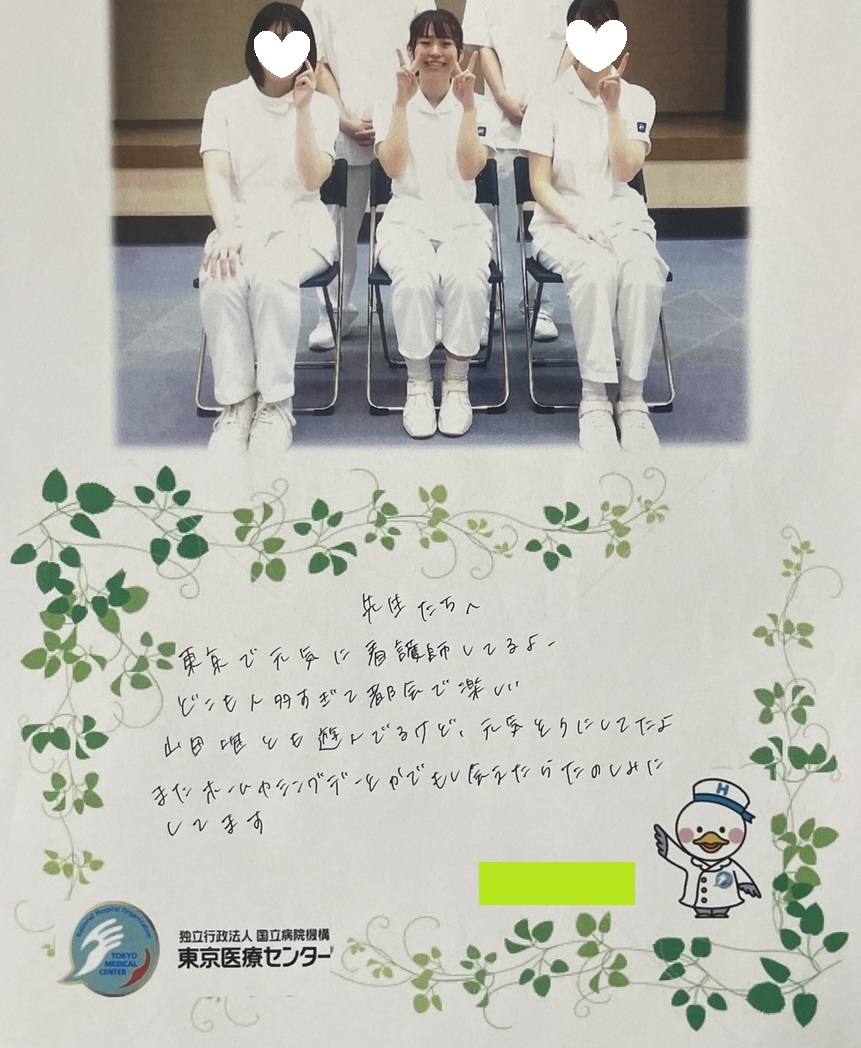 先生たちへ
東京で元気に看護師してるよー
どこも人多すぎて都会で楽しい
山田唯とも遊んでるけど、元気そうにしてたよ
またホームカミングデーとかでもし会えたらたのしみに
してます
H
National Hospital Organization
TOKYO
MEDICAL
CENTER
独立行政法人 国立病院機構
東京医療センター